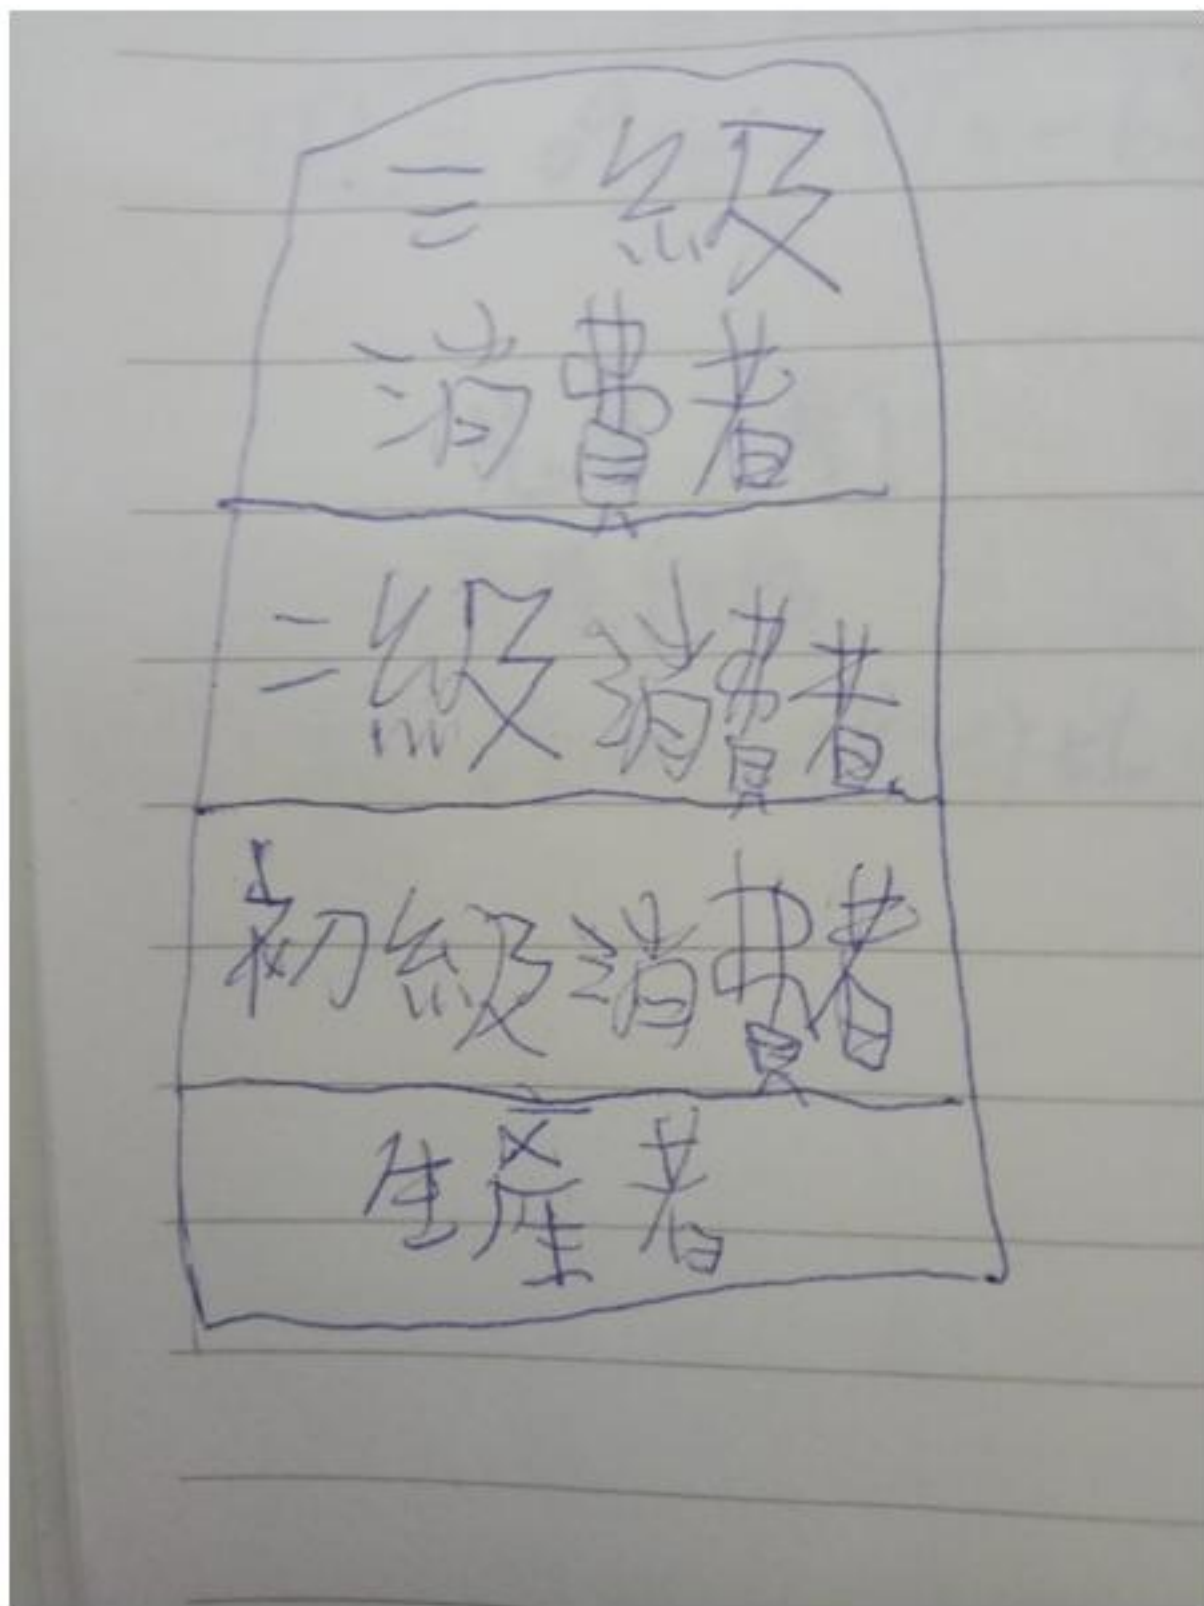 三級
消費者
二級消費者
初級消費者
生產者